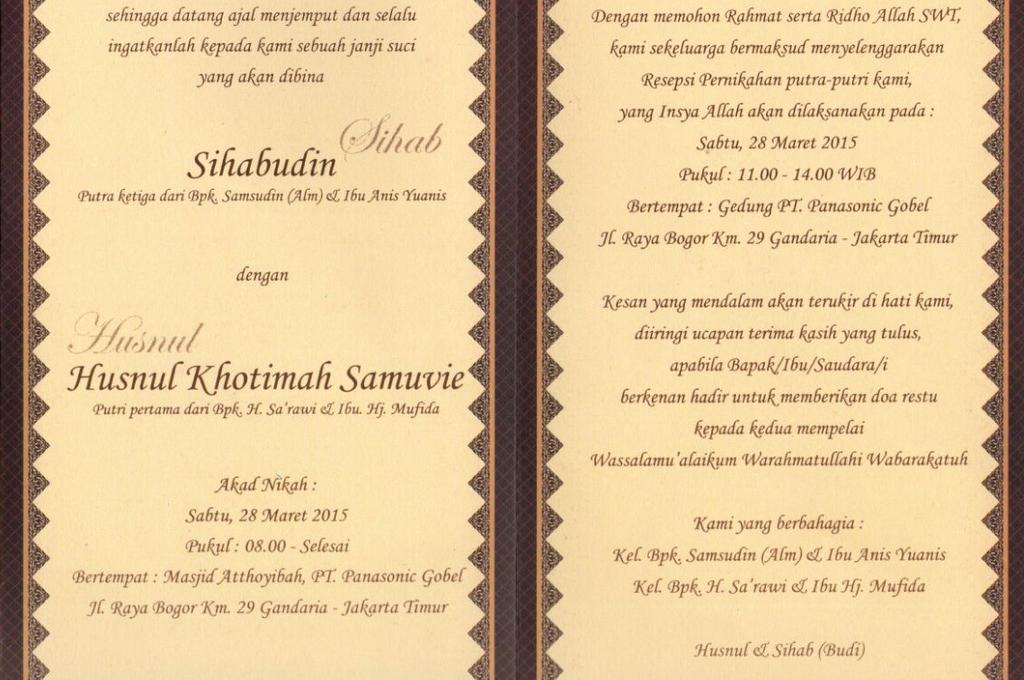 sehingga datang ajal menjemput dan selalu
ingatkanlah kepada kami sebuah janji suci
yang akan dibina
Sihab
Sihabudin
Putra ketiga dari Bpk. Samsudin (Alm) & Ibu Anis Yuanis
dengan
Husnul
Husnul Khotimah Samuvie
Putri pertama dari Bpk. H. Sa'rawi & Ibu. Hj. Mufida
Akad Nikah :
Sabtu, 28 Maret 2015
Pukul : 08.00 - Selesai
Bertempat : Masjid Atthoyibah, PT. Panasonic Gobel
Jl. Raya Bogor Km. 29 Gandaria - Jakarta Timur
Dengan memohon Rahmat serta Ridho Allah SWT,
kami sekeluarga bermaksud menyelenggarakan
Resepsi Pernikahan putra-putri kami,
yang Insya Allah akan dilaksanakan pada :
Sabtu, 28 Maret 2015
Pukul : 11.00 - 14.00 WIB
Bertempat : Gedung PT. Panasonic Gobel
Jl. Raya Bogor Km. 29 Gandaria - Jakarta Timur
Kesan yang mendalam akan terukir di hati kami,
diiringi ucapan terima kasih yang tulus,
apabila Bapak/Ibu/Saudara/i
berkenan hadir untuk memberikan doa restu
kepada kedua mempelai
Wassalamu'alaikum Warahmatullahi Wabarakatuh
Kami yang berbahagia :
Kel. Bpk. Samsudin (Alm) & Ibu Anis Yuanis
Kel. Bpk. H. Sa'rawi & Ibu Hj. Mufida
Husnul & Sihab (Budi)